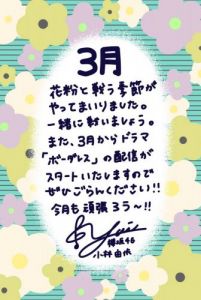 3月
花粉と戦う季節が
やってまいりました。
一緒に戦いましょう。
また、3月からドラマ
「ボーダレス」の配信が
スタートいたしますので
ぜひごらんください!!
今月も頑張ろう〜!!
欅坂46
小林由依